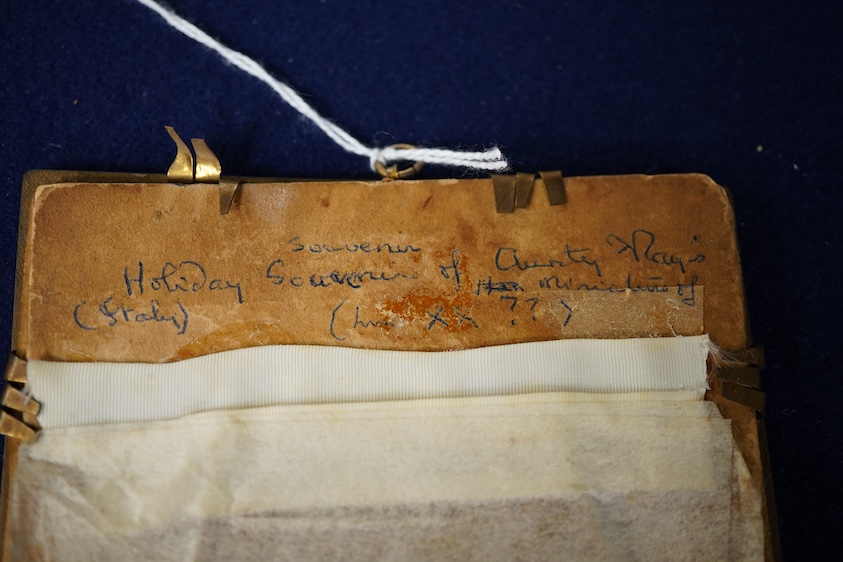 souvenir
Holiday Souvenir of Aunty May's
(Italy) Miniature of
( XX ?? )